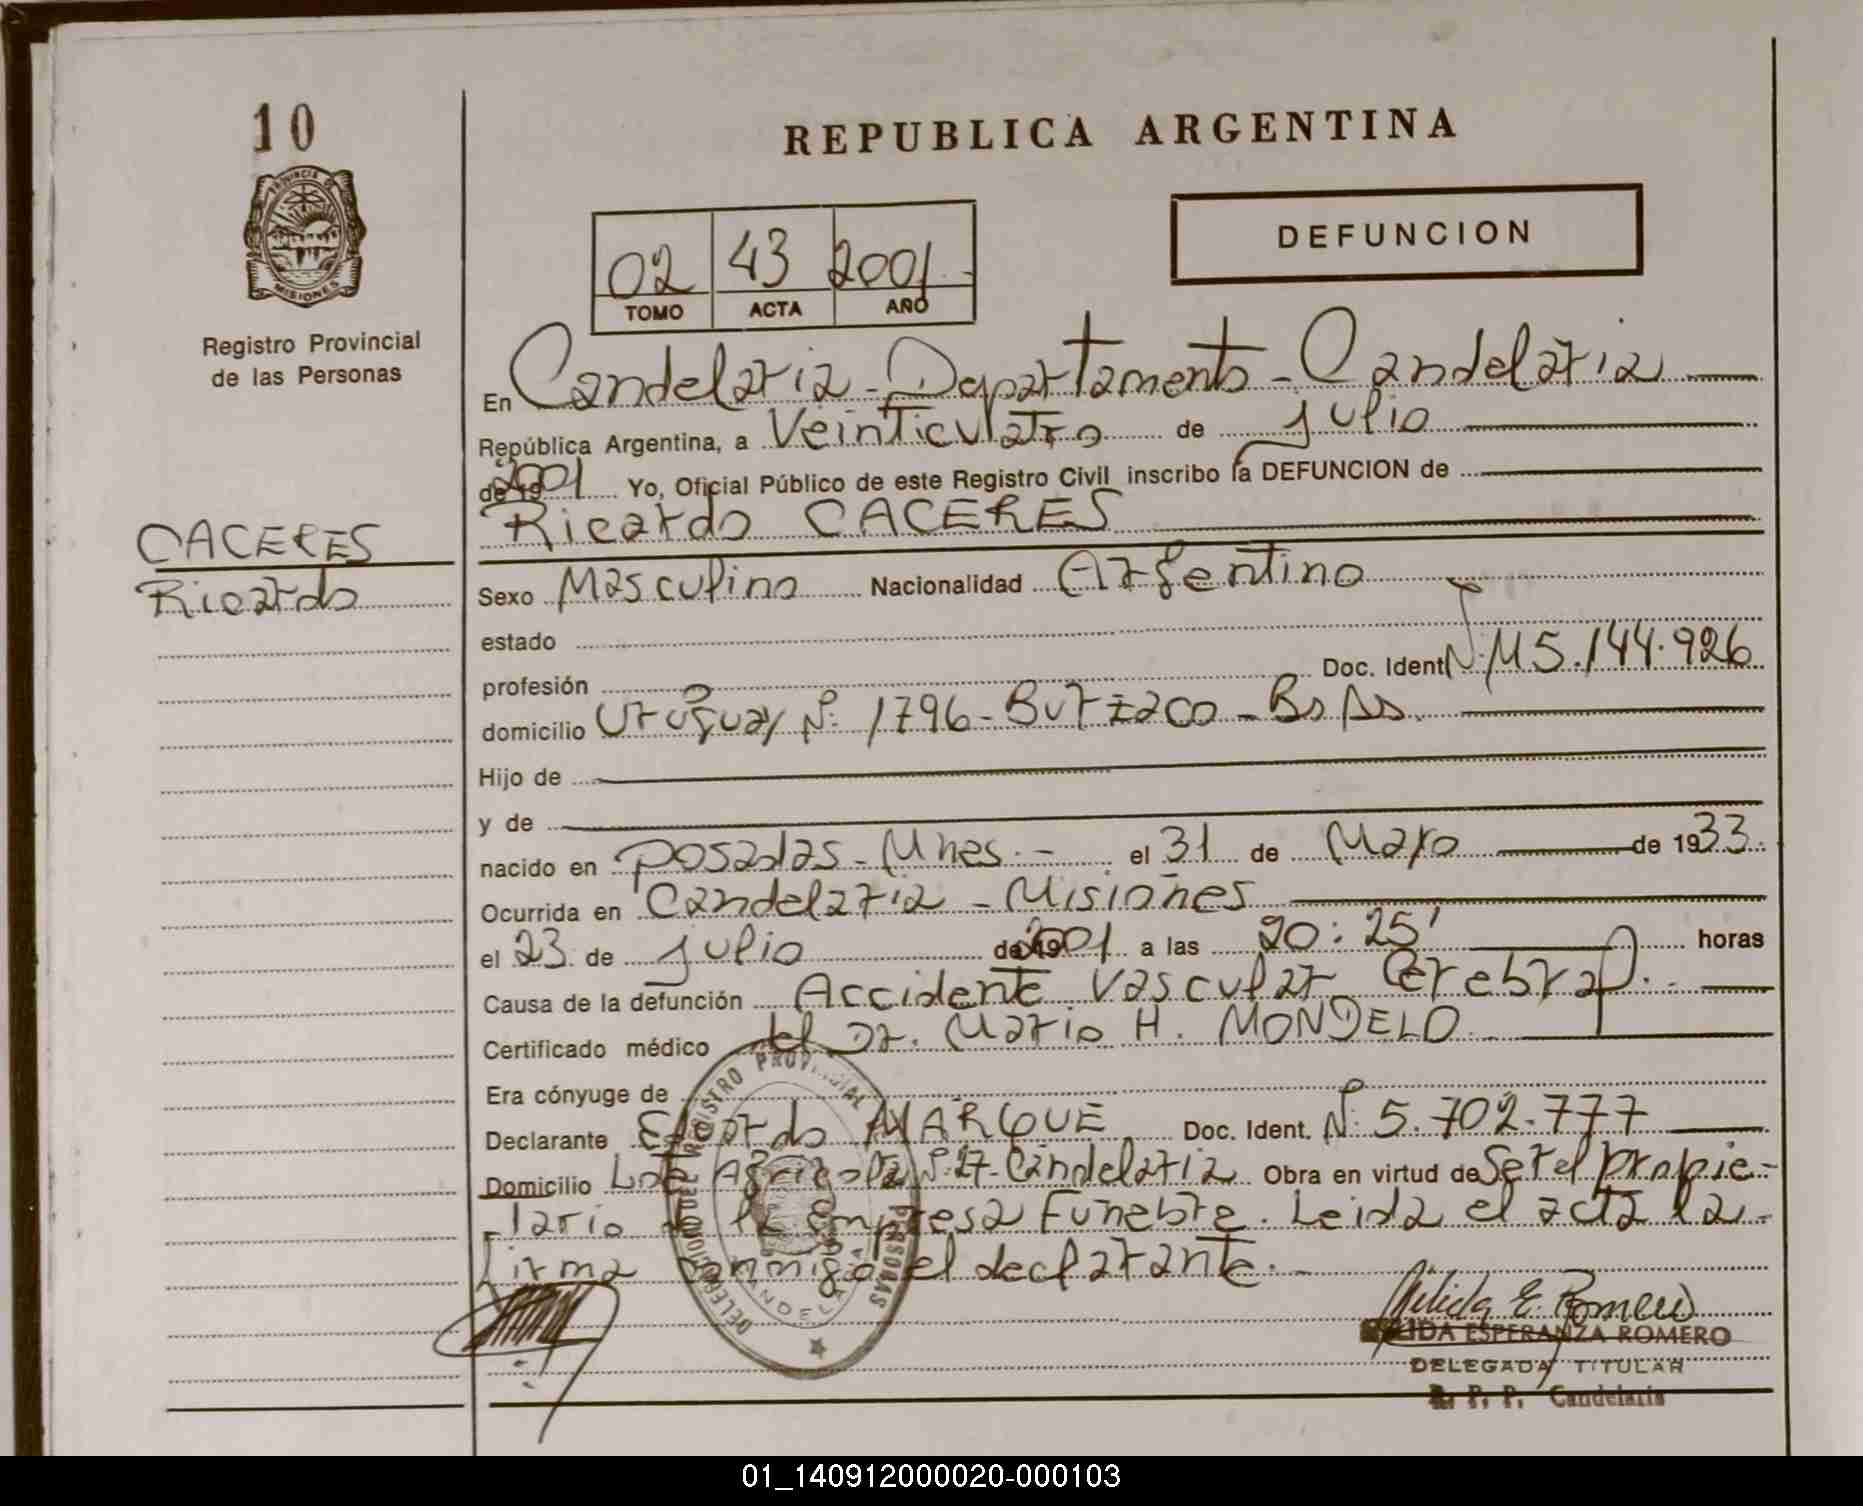 10
REPUBLICA ARGENTINA
PROVINCIA DE
MISIONES
Registro Provincial
de las Personas
DEFUNCION
02 43 2001.-
TOMO ACTA AÑO
En Candelaria - Departamento - Candelaria
República Argentina, a Veinticuatro de julio
de 19 2001 Yo, Oficial Público de este Registro Civil inscribo la DEFUNCION de
Ricardo CACERES
CACERES
Ricardo
Sexo Masculino Nacionalidad Argentino
estado
profesión Doc. Ident. Nº: M 5.144.926
domicilio Uruguay Nº: 1796 - Burzaco - Bs As.
Hijo de
y de
nacido en Posadas - Mnes.- el 31 de Mayo de 1933.
Ocurrida en Candelaria - Misiones
el 23 de julio de 19 2001 a las 20:25' horas
Causa de la defunción Accidente Vascular Cerebral.-
Certificado médico del Dr. Mario H. MONDELO
Era cónyuge de
Declarante Eduardo MARQUE Doc. Ident. Nº: 5.702.777
Domicilio Lote Agricola Nº: 27 - Candelaria Obra en virtud de Ser el propie-
tario de la Empresa Funebre. Leida el acta la
firma conmigo el declarante.-
DELEGACION DEL REGISTRO PROVINCIAL PERSONAS
CANDELARIA
E. Romero
IDA ESPERANZA ROMERO
DELEGADA TITULAR
R. P. P. Candelaria
01_140912000020-000103